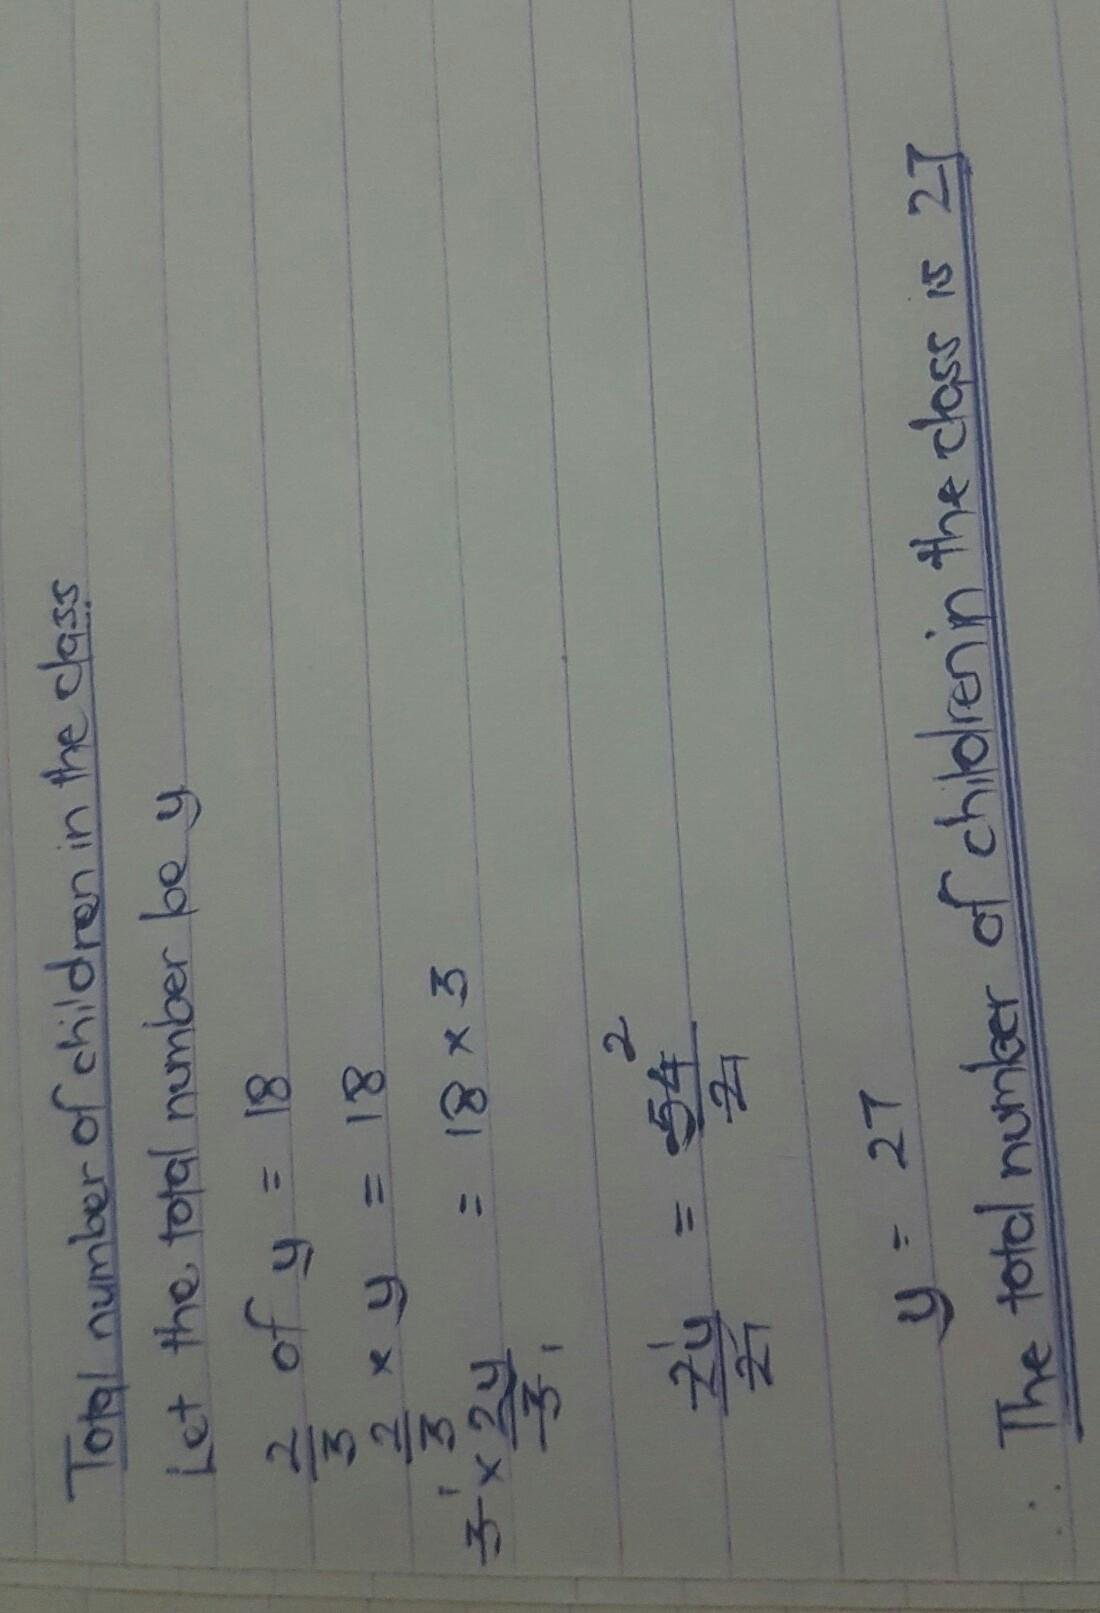 Total number of children in the class
Let the total number be y
2/3 of y = 18
2/3 × y = 18
3 1 × 2y/3 1 = 18 × 3
2 1 y/2 1 = 54 2/2 1
y = 27
∴ The total number of children in the class is 27